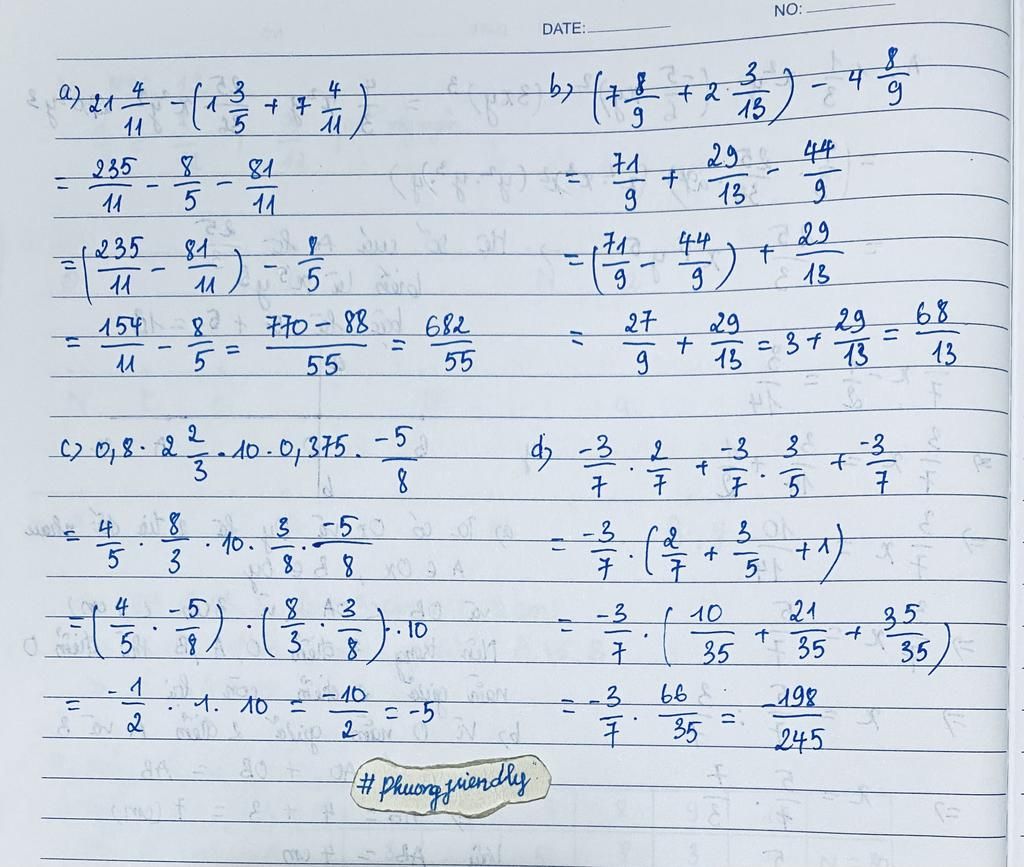 NO:
DATE:
a) 21 4/11 - (1 3/5 + 7 4/11)
= 235/11 - 8/5 - 81/11
= (235/11 - 81/11) - 8/5
= 154/11 - 8/5 = 770 - 88/55 = 682/55
b) (7 8/9 + 2 3/13) - 4 8/9
= 71/9 + 29/13 - 44/9
= (71/9 - 44/9) + 29/13
= 27/9 + 29/13 = 3 + 29/13 = 68/13
c) 0,8 · 2 2/3 · 10 · 0,375 · -5/8
= 4/5 · 8/3 · 10 · 3/8 · -5/8
= (4/5 · -5/8) · (8/3 · 3/8) · 10
= -1/2 · 1 · 10 = -10/2 = -5
d) -3/7 · 2/7 + -3/7 · 3/5 + -3/7
= -3/7 · (2/7 + 3/5 + 1)
= -3/7 · (10/35 + 21/35 + 35/35)
= -3/7 · 66/35 = -198/245
#phuongfriendly